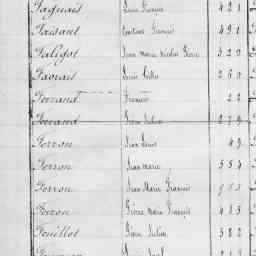 Paguais Louis François 421
Paisant Constant François 491
Paligot Jean Marie Nicolas Pierre 320
Pavrais Louis Gilles 260
Perraud François 22
Perraud Pierre Julien 279
Perron Jean Louis 49
Perron Jean Marie 554
Perron Jean Marie François
Perron Pierre Marie François 413
Peuillot Pierre Julien 322